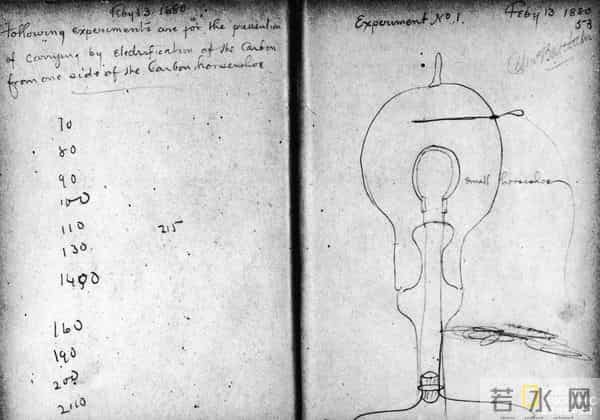 Feby 13 1880
Following experiments are for the prevention
of Carrying by Electrification of the Carbon
from one side of the Carbon horseshoe
70
80
90
100
110 215
130
140
160
190
200
2110
Experiment No 1. Feby 13 1880
53
small horseshoe
若水网